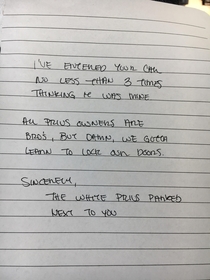 I'VE ENTERED YOUR CAR
NO LESS THAN 3 TIMES
THINKING IT WAS MINE
ALL PRIUS OWNERS ARE
BRO'S, BUT DAMN, WE GOTTA
LEARN TO LOCK OUR DOORS.
SINCERELY,
THE WHITE PRIUS PARKED
NEXT TO YOU